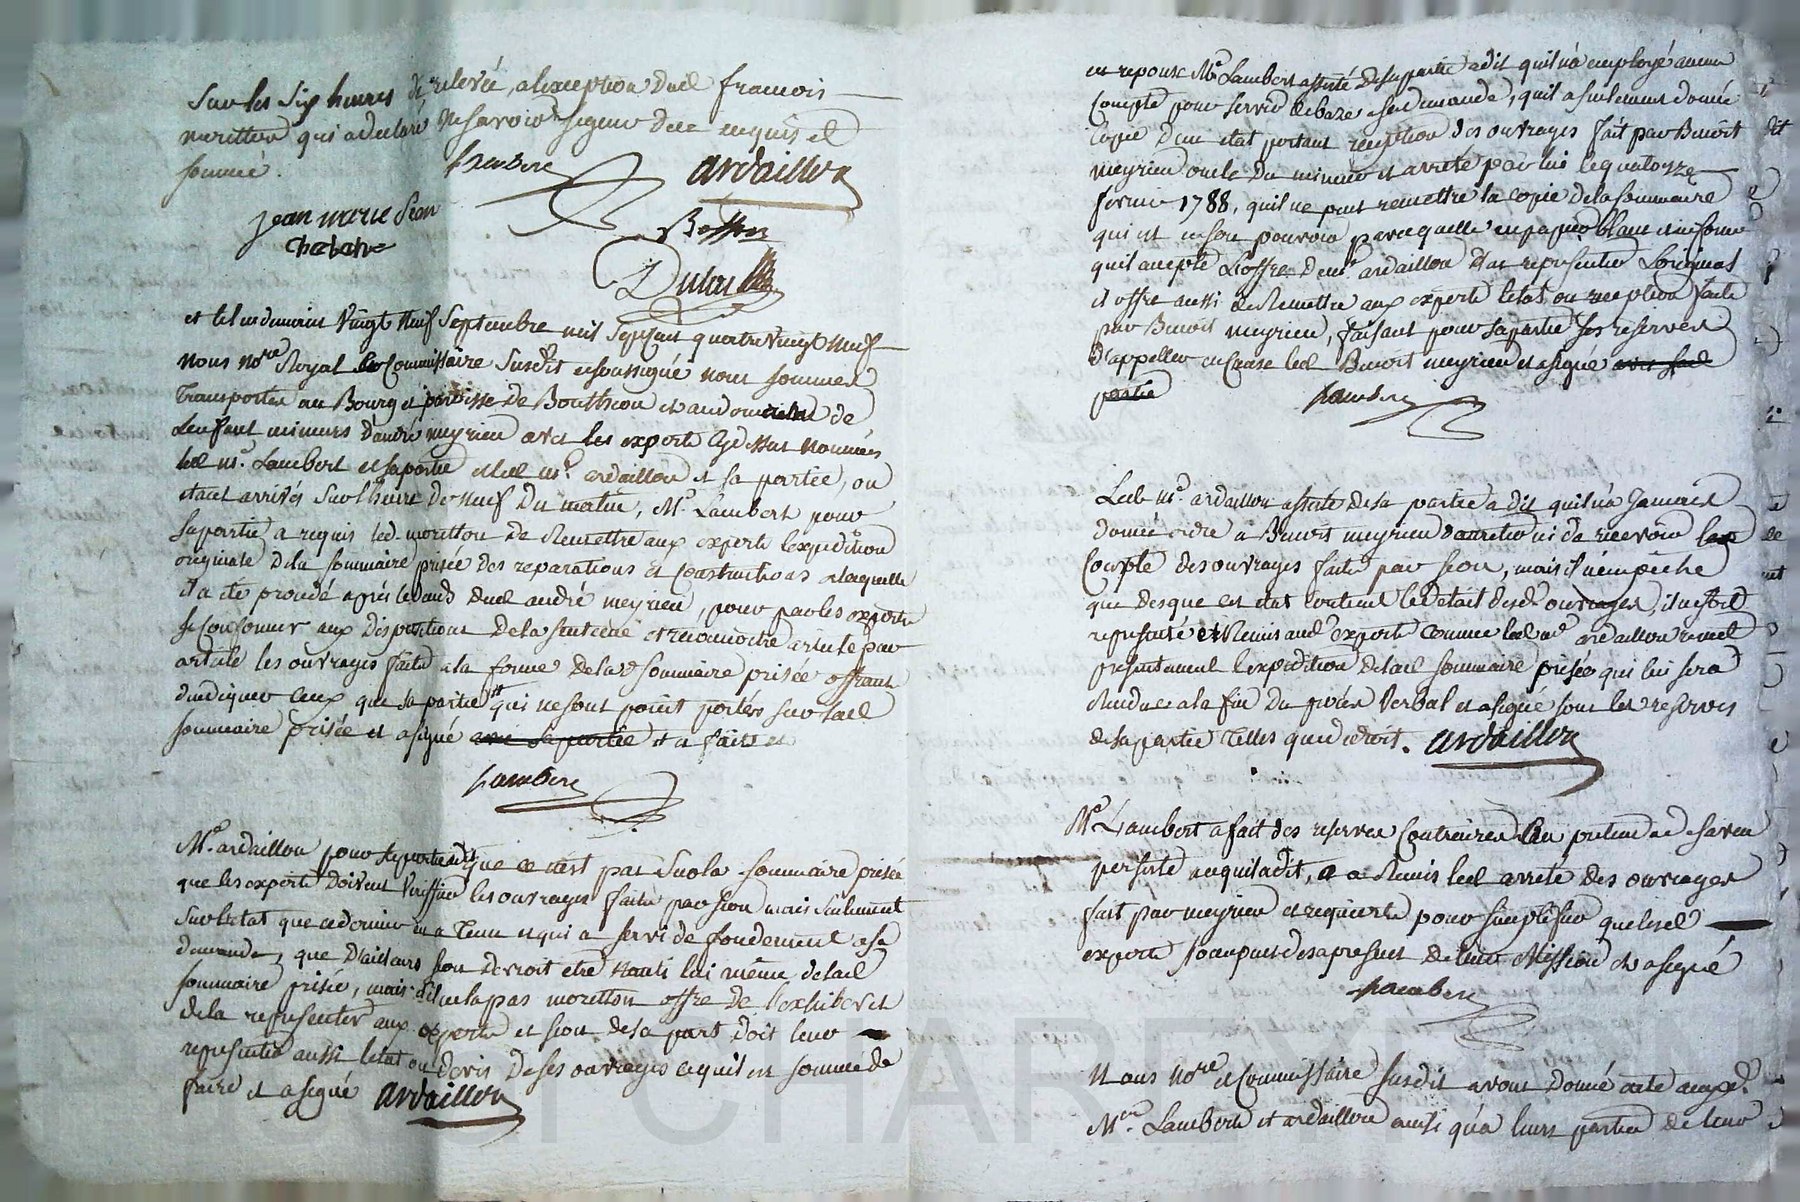 Sur les six heures de relevée, a lexception dud. francois
moretton qui a declaré ne savoir signer de ce enquis et
sommé.
Lambert
ardaillon
jean marie Sion
Besson
Chatelve
Dulac
et le lendemain vingt neuf Septembre mil Sept cent quatre vingt neuf
nous nore. Royal Commissaire Susdit et soussigné nous sommes
Transportés au Bourg et paroisse de Bouthéon et au domicile de
Lenfant mineurs dandré meyrieu avec les experts cy dessus nommés
led. mr. Lambert et sa partie et led. mr. ardaillon et sa partie, ou
etant arrivés sur lheure de neuf du matin, Mr. Lambert pour
sa partie a requis led. moretton de Remettre aux experts lexpedition
originale de la sommaire prisée des reparations et constructions a laquelle
il a eté procédé aprés le decés dud. andré meyrieu, pour par les experts
se conformer aux dispositions de la sentence et reconnoitre article par
article les ouvrages faits a la forme de lad. sommaire prisée offrant
dindiquer ceux que sa partie a faits et qui ne sont point portés sur lad.
sommaire prisée et a signé avec sa partie
Lambert
Mr. ardaillon pour sa partie a dit que ce n'est pas sur la sommaire prisée
que les experts doivent veriffier les ouvrages faits par sion mais seulement
sur letat que ce dernier en a tenu et qui a servi de fondement a sa
demande, que d'ailleurs sion devroit etre nanti lui même de lad.
sommaire prisée, mais s'il ne la pas moretton offre de l'exhiber et
de la representer aux experts et sion de sa part doit leur
representer aussi letat ou devis de ses ouvrages ce quil est sommé de
faire et a signé ardaillon
en reponse Mr. Lambert assisté de sa partie a dit quil n'a employé aucun
Compte pour servir de baze a sa demande, quil a seulement donné
Copie d'un etat portant reception des ouvrages fait par Benoit
meyrieu oncle du mineur et arreté par lui le quatorze
fevrier 1788, quil ne peut remettre la copie de la sommaire
qui est en son pouvoir parce quelle en papier blanc et informe
quil accepte Loffre de mr. ardaillon d'en representer Loriginal
et offre aussi de Remettre aux experts letat ou reception faite
par Benoit meyrieu, faisant pour sa partie ses reserves
d'appeller en Cause led. Benoit meyrieu et a signé avec sad.
partie
Lambert
Led. mr. ardaillon assisté de sa partie a dit quil n'a Jamais
donné ordre a Benoit meyrieu d'arreter ni de recevoir le
Compte des ouvrages faits par sion, mais il n'empêche
que des que cet etat contient le detail desd. ouvrages, il ne soit
representé et Remis aud. experts comme led. mr. ardaillon remet
presentement lexpedition de lad. sommaire prisée qui lui sera
Rendue a la fin du procés verbal et a signé sous les reserves
de sa partie telles que de droit. ardaillon
Mr. Lambert a fait des reserves Contraires
persisté a ce quil a dit, a Remis led. arreté des ouvrages
fait par meyrieu et requiert pour simplifier que lesd.
experts soccupent des a present de leur Mission et a signé
Lambert
Nous nore. et Commissaire susdit avons donné acte auxd.
Mes. Lambert et ardaillon ainsi qu'a leurs parties de leur